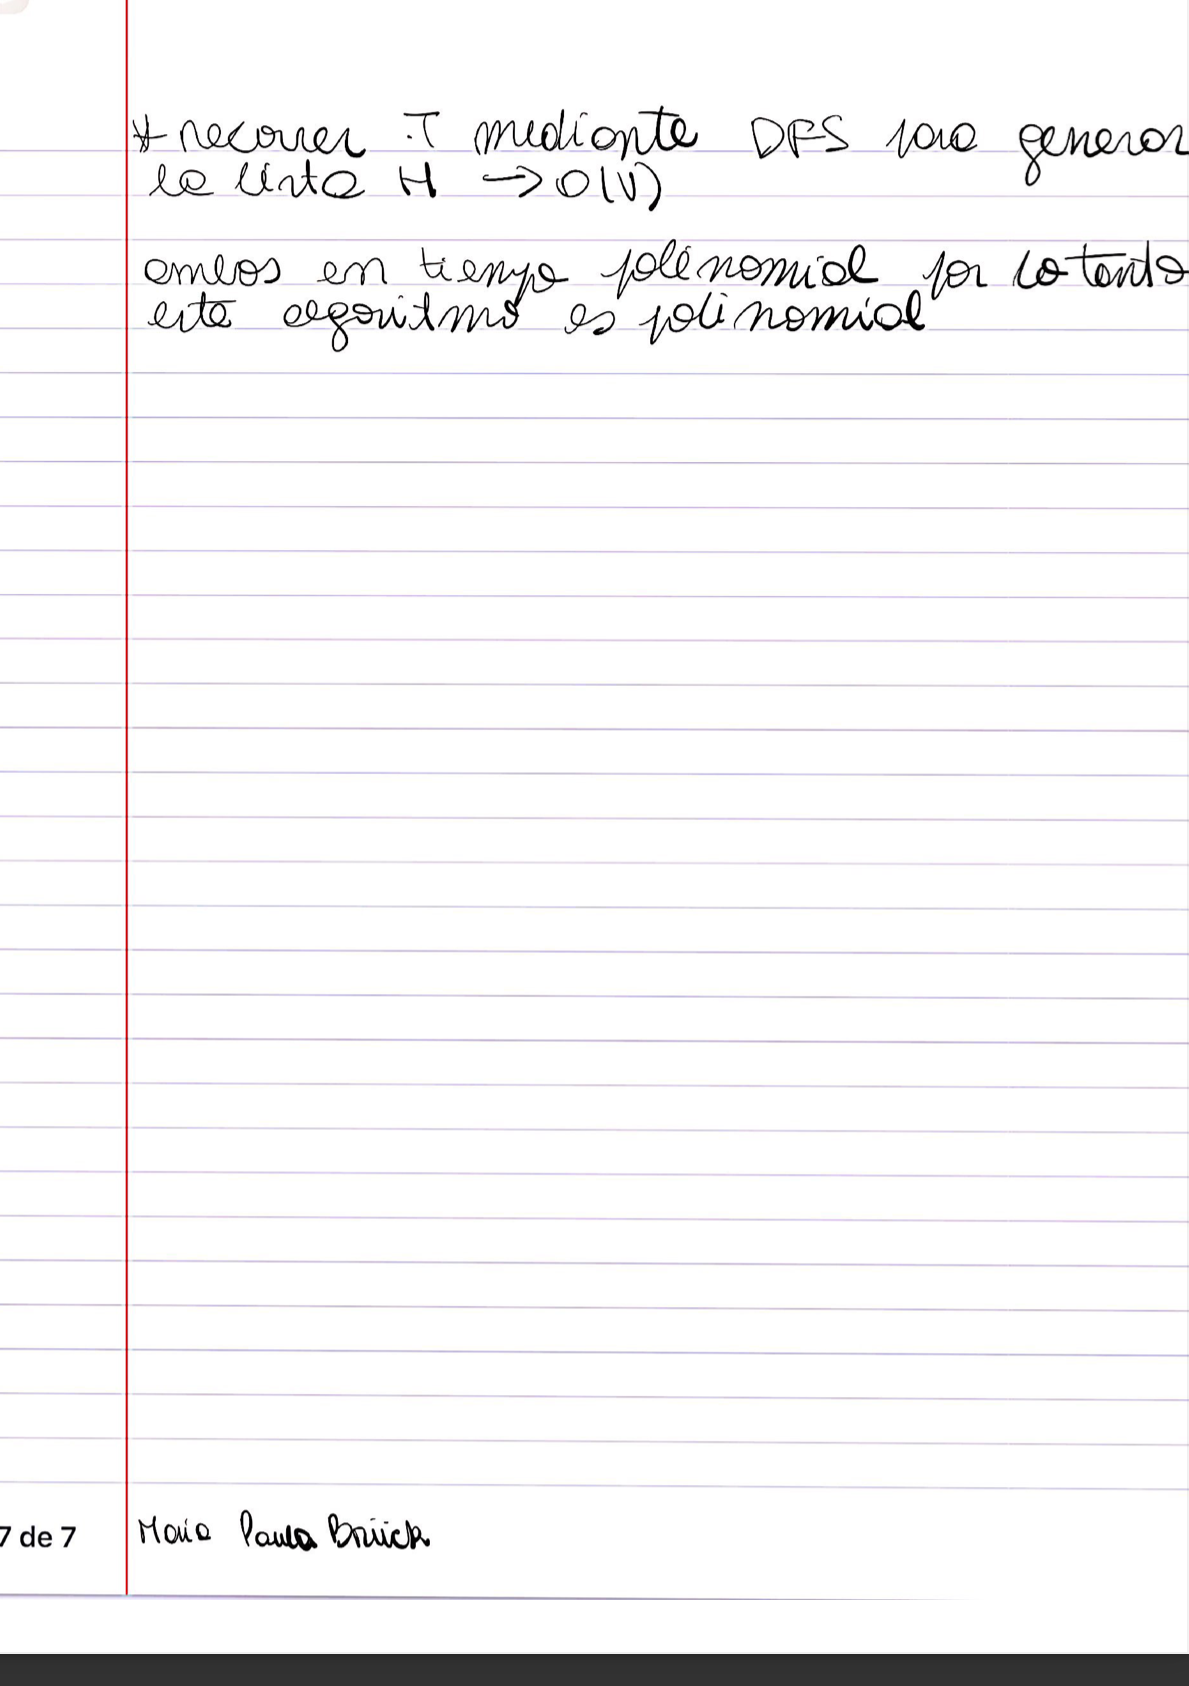 * recorrer T mediante DFS para generar
la lista H → O(V)
ambos en tiempo polinomial por lo tanto
este algoritmo es polinomial
7 de 7
Maria Paula Brück